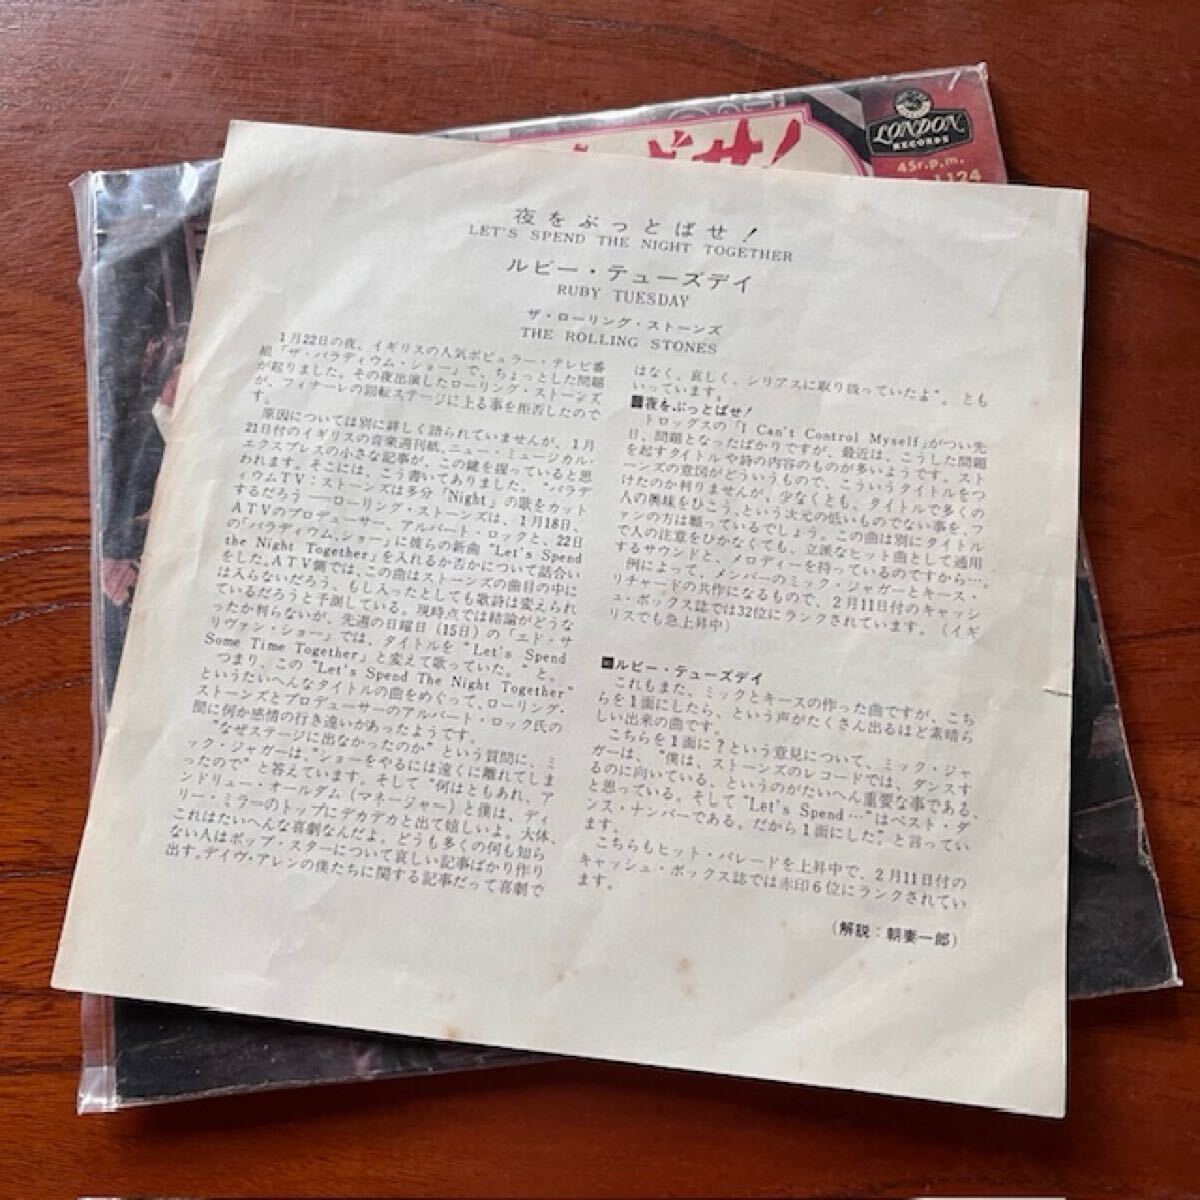 LONDON
RECORDS
45r.p.m.
1124
夜をぶっとばせ！
LET'S SPEND THE NIGHT TOGETHER
ルビー・テューズデイ
RUBY TUESDAY
ザ・ローリング・ストーンズ
THE ROLLING STONES
1月22日の夜、イギリスの人気ポピュラー・テレビ番
組「ザ・パラディウム・ショー」で、ちょっとした問題
が起りました。その夜出演したローリング・ストーンズ
が、フィナーレの回転ステージに上る事を拒否したので
す。
原因については別に詳しく語られていませんが、1月
21日付のイギリスの音楽週刊紙、ニュー・ミュージカル・
エクスプレスの小さな記事が、この鍵を握っていると思
われます。そこには、こう書いてありました。“パラデ
ィウムTV：ストーンズは多分「Night」の歌をカット
するだろう――ローリング・ストーンズは、1月18日、
ATVのプロデューサー、アルバート・ロックと、22日
の「パラディウム・ショー」に彼らの新曲“Let's Spend
the Night Together」を入れるか否かについて話合い
をした。ATV側では、この曲はストーンズの曲目の中に
は入らないだろう、もし入ったとしても歌詩は変えられ
ているだろうと予測している。現時点では結論がどうな
ったか判らないが、先週の日曜日（15日）の「エド・サ
リヴァン・ショー」では、タイトルを“Let's Spend
Some Time Together」と変えて歌っていた。”と。
つまり、この“Let's Spend The Night Together”
というたいへんなタイトルの曲をめぐって、ローリング・
ストーンズとプロデューサーのアルバート・ロック氏の
間に何か感情の行き違いがあったようです。
“なぜステージに出なかったのか”という質問に、ミ
ック・ジャガーは、“ショーをやるには遠くに離れてしま
ったので”と答えています。そして“何はともあれ、ア
ンドリュー・オールダム（マネージャー）と僕は、ディ
リー・ミラーのトップにデカデカと出て嬉しいよ。大体、
これはたいへんな喜劇なんだよ。どうも多くの何も知ら
ない人はポップ・スターについて哀しい記事ばかり作り
出す。デイヴ・アレンの僕たちに関する記事だって喜劇で
はなく、哀しく、シリアスに取り扱っていたよ”。とも
いっています。
■夜をぶっとばせ！
トロッグスの「I Can't Control Myself」がつい先
日、問題となったばかりですが、最近は、こうした問題
を起すタイトルや詩の内容のものが多いようです。スト
ーンズの意図がどういうもので、こういうタイトルをつ
けたのか判りませんが、少なくとも、タイトルで多くの
人の興味をひこう、という次元の低いものでない事を、フ
ァンの方は願っているでしょう。この曲は別にタイトル
で人の注意をひかなくても、立派なヒット曲として通用
するサウンドと、メロディーを持っているのですから…。
例によって、メンバーのミック・ジャガーとキース・
リチャードの共作になるもので、2月11日付のキャッシ
ュ・ボックス誌では32位にランクされています。（イギ
リスでも急上昇中）
■ルビー・テューズデイ
これもまた、ミックとキースの作った曲ですが、こち
らを1面にしたら、という声がたくさん出るほど素晴ら
しい出来の曲です。
こちらを1面に？という意見について、ミック・ジャ
ガーは、“僕は、ストーンズのレコードでは、ダンスす
るのに向いている、というのがたいへん重要な事である、
と思っている。そして“Let's Spend…”はベスト・ダ
ンス・ナンバーである。だから1面にした”と言ってい
ます。
こちらもヒット・パレードを上昇中で、2月11日付の
キャッシュ・ボックス誌では赤印6位にランクされてい
ます。
（解説：朝妻一郎）